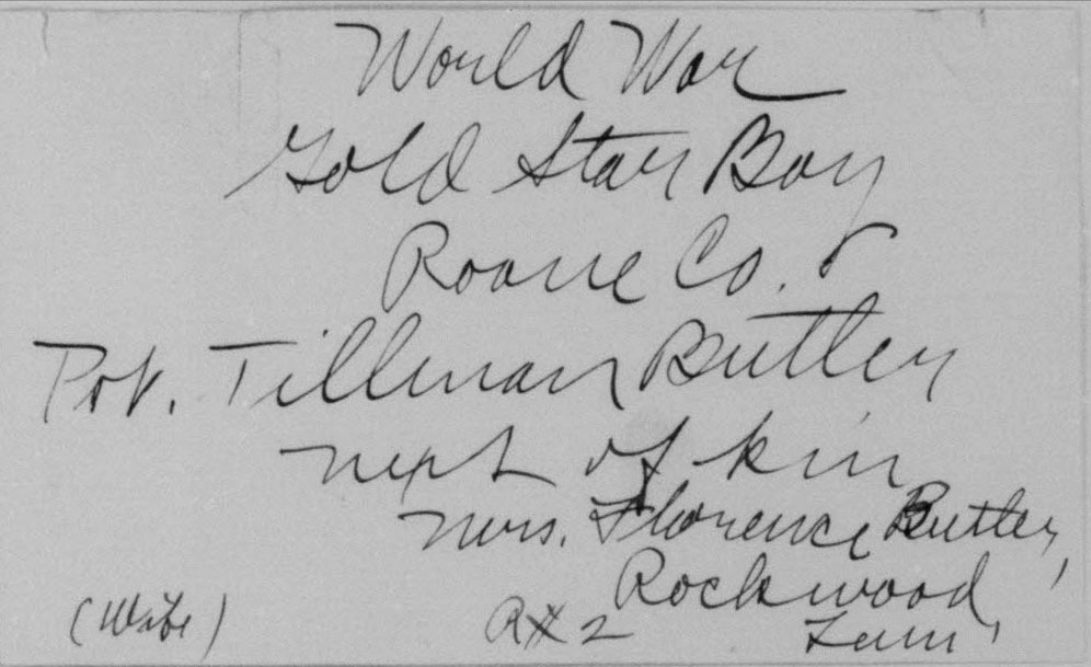 World War
Gold Star Boy
Roane Co.
Pvt. Tillman Butler
next of kin
Mrs. Florence Butler,
Rockwood,
(Wife) R#2 Tenn.